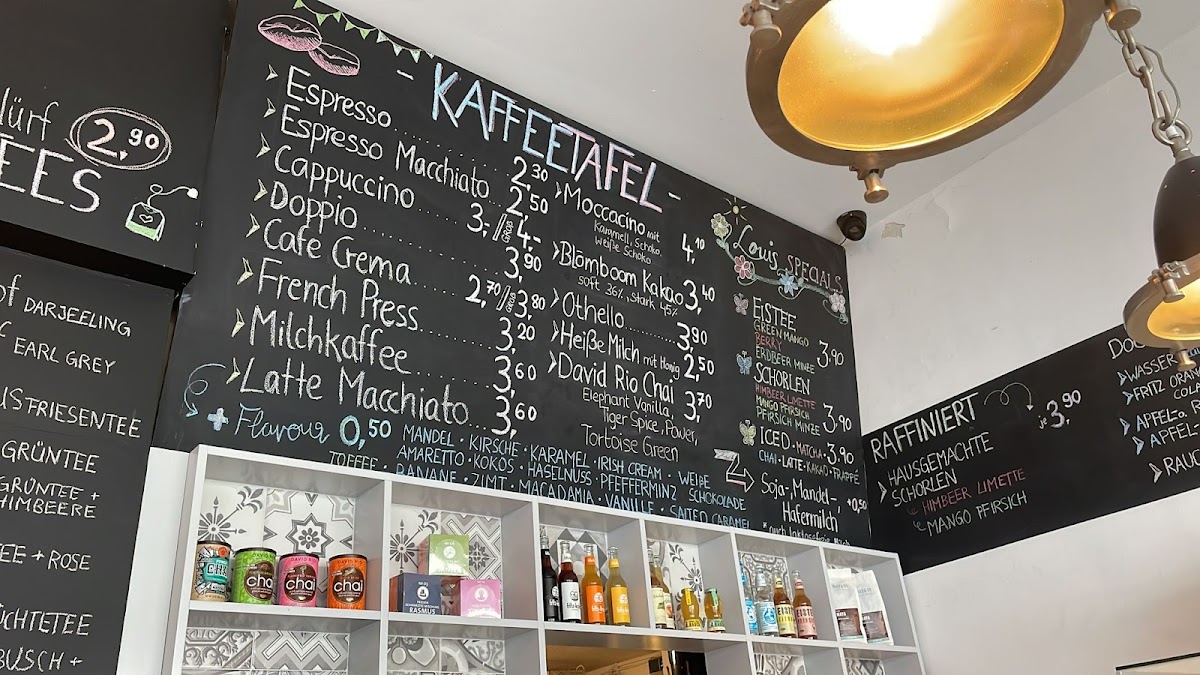 lürf 2,90
EES
of DARJEELING
EARL GREY
USFRIESENTEE
GRÜNTEE
GRÜNTEE +
HIMBEERE
EE + ROSE
ÜCHTETEE
BUSCH +
- KAFFEETAFEL -
Espresso 2,30
Espresso Macchiato 2,50
Cappuccino 3,- // GROß 4,-
Doppio 3,90
Cafe Crema 2,70 // GROß 3,80
French Press 3,20
Milchkaffee 3,60
Latte Macchiato 3,60
+ Flavour 0,50
MANDEL · KIRSCHE · KARAMEL · IRISH CREAM · WEIßE
AMARETTO · KOKOS · HASELNUSS · PFEFFERMINZ SCHOKOLADE
TOFFEE · BANANE · ZIMT · MACADAMIA · VANILLE · SALTED CARAMEL
Moccacino mit 4,10
Karamell, Schoko,
weiße Schoko
Blömboom Kakao 3,40
soft 36%, stark 45%
Othello 3,90
Heiße Milch mit Honig 2,50
David Rio Chai 3,70
Elephant Vanilla,
Tiger Spice, Power,
Tortoise Green
Louis SPECIALS
EISTEE 3,90
GREEN MANGO
BERRY
ERDBEER MINZE
SCHORLEN 3,90
HIMBEER LIMETTE
MANGO PFIRSICH
PFIRSICH MINZE
ICED · MATCHA · 3,90
CHAI · LATTE · KAKAO · FRAPPE
Soja-, Mandel-, +0,50
Hafermilch
* auch laktosefreie Milch
RAFFINIERT je 3,90
HAUSGEMACHTE
SCHORLEN
HIMBEER LIMETTE
MANGO PFIRSICH
WASSER
FRITZ ORAN
APFEL- o.
APFELS
RAUC
DAVID RIO
chai
chai
chai
RASMUS